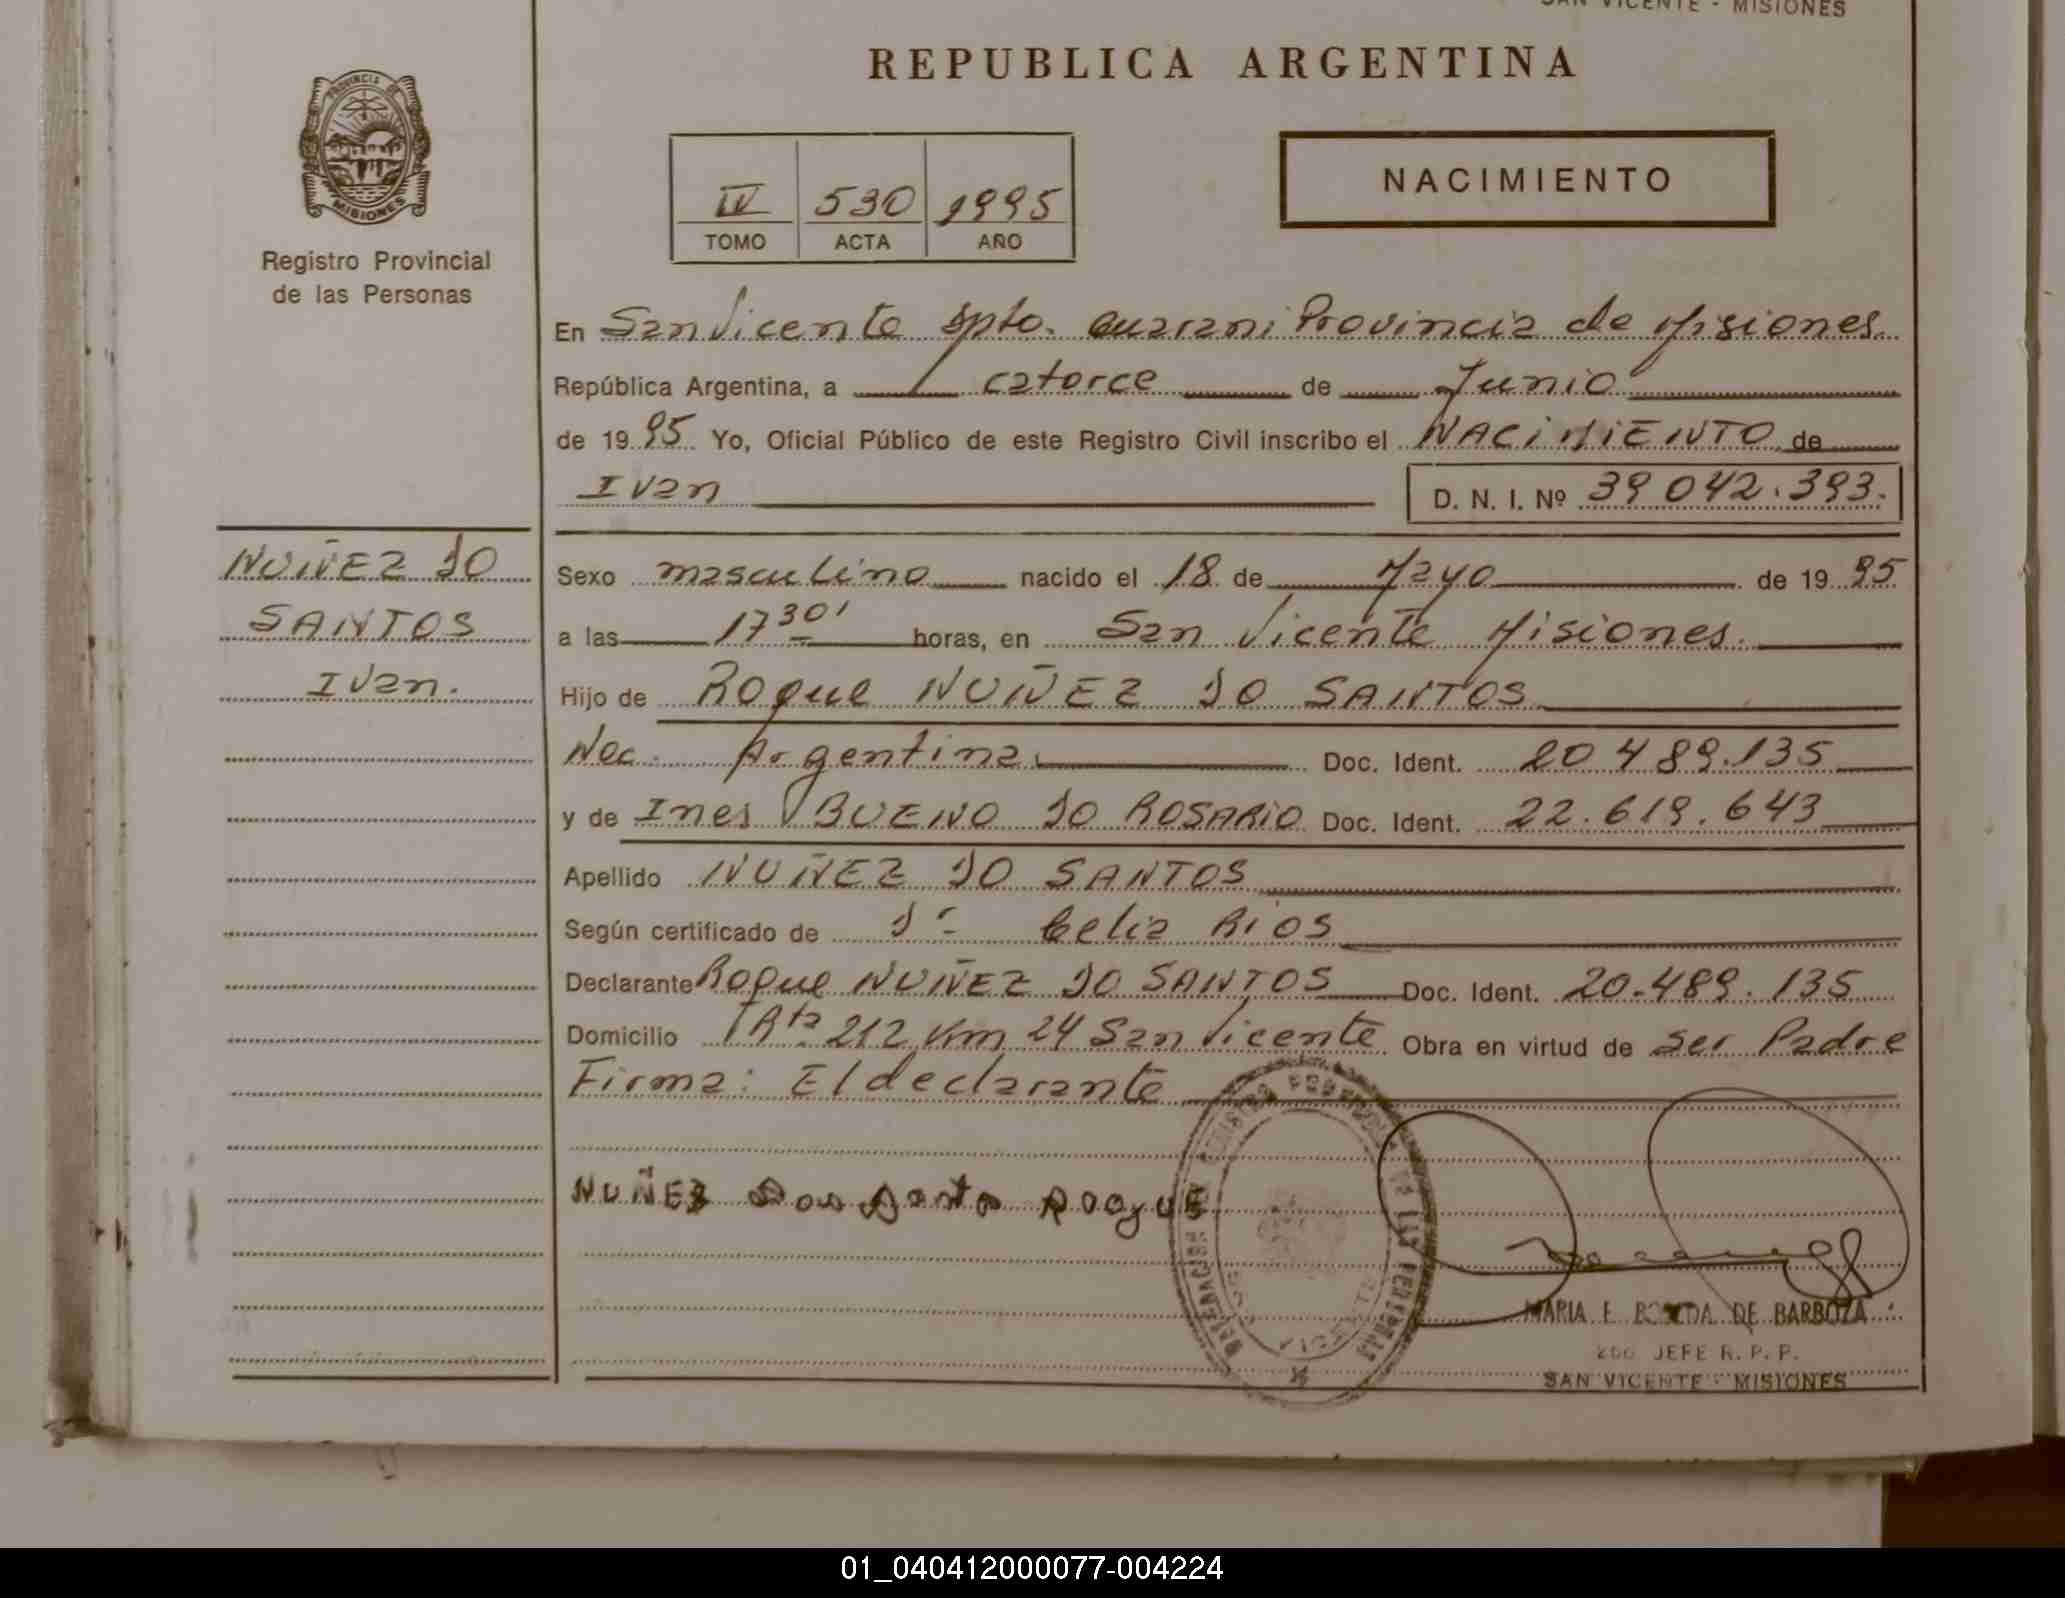 SAN VICENTE - MISIONES
REPUBLICA ARGENTINA
PROVINCIA DE
MISIONES
Registro Provincial
de las Personas
IV 530 1995
TOMO ACTA AÑO
NACIMIENTO
En San Vicente Dpto. Guarani Provincia de Misiones.
República Argentina, a catorce de Junio
de 1995 Yo, Oficial Público de este Registro Civil inscribo el NACIMIENTO de
Ivan D. N. I. Nº 39042.393.
NUÑEZ DO
SANTOS
Ivan.
Sexo masculino nacido el 18 de Mayo de 1995
a las 17 30' horas, en San Vicente Misiones.
Hijo de Roque NUÑEZ DO SANTOS
Nac. Argentina Doc. Ident. 20 489.135
y de Ines BUENO DO ROSARIO Doc. Ident. 22.619.643
Apellido NUÑEZ DO SANTOS
Según certificado de Dr Celia Rios
Declarante Roque NUÑEZ DO SANTOS Doc. Ident. 20.489.135
Domicilio Rta 212 Km 24 San Vicente Obra en virtud de ser Padre
Firma: El declarante
NUÑEZ Dos Santo ROQUE
MARIA E. DE BARBOZA
JEFE R. P. P.
SAN VICENTE - MISIONES
01_040412000077-004224